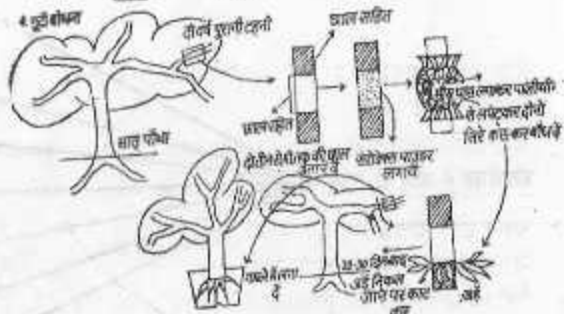 4. गूटी बांधना
दो वर्ष पुरानी टहनी
छाल सहित
छाल रहित
मातृ पौधा
दो तीन सेमी तक की छाल
उतार दें
सेरेडेक्स पाउडर
लगायें
मौस घास लगाकर पालीथीन
से लपेटकर दोनो
सिरे कस कर बाँध दें
गमले में लगा
दें
दिन बाद
जड़ें निकल
जाने पर काट
कर
जड़ें